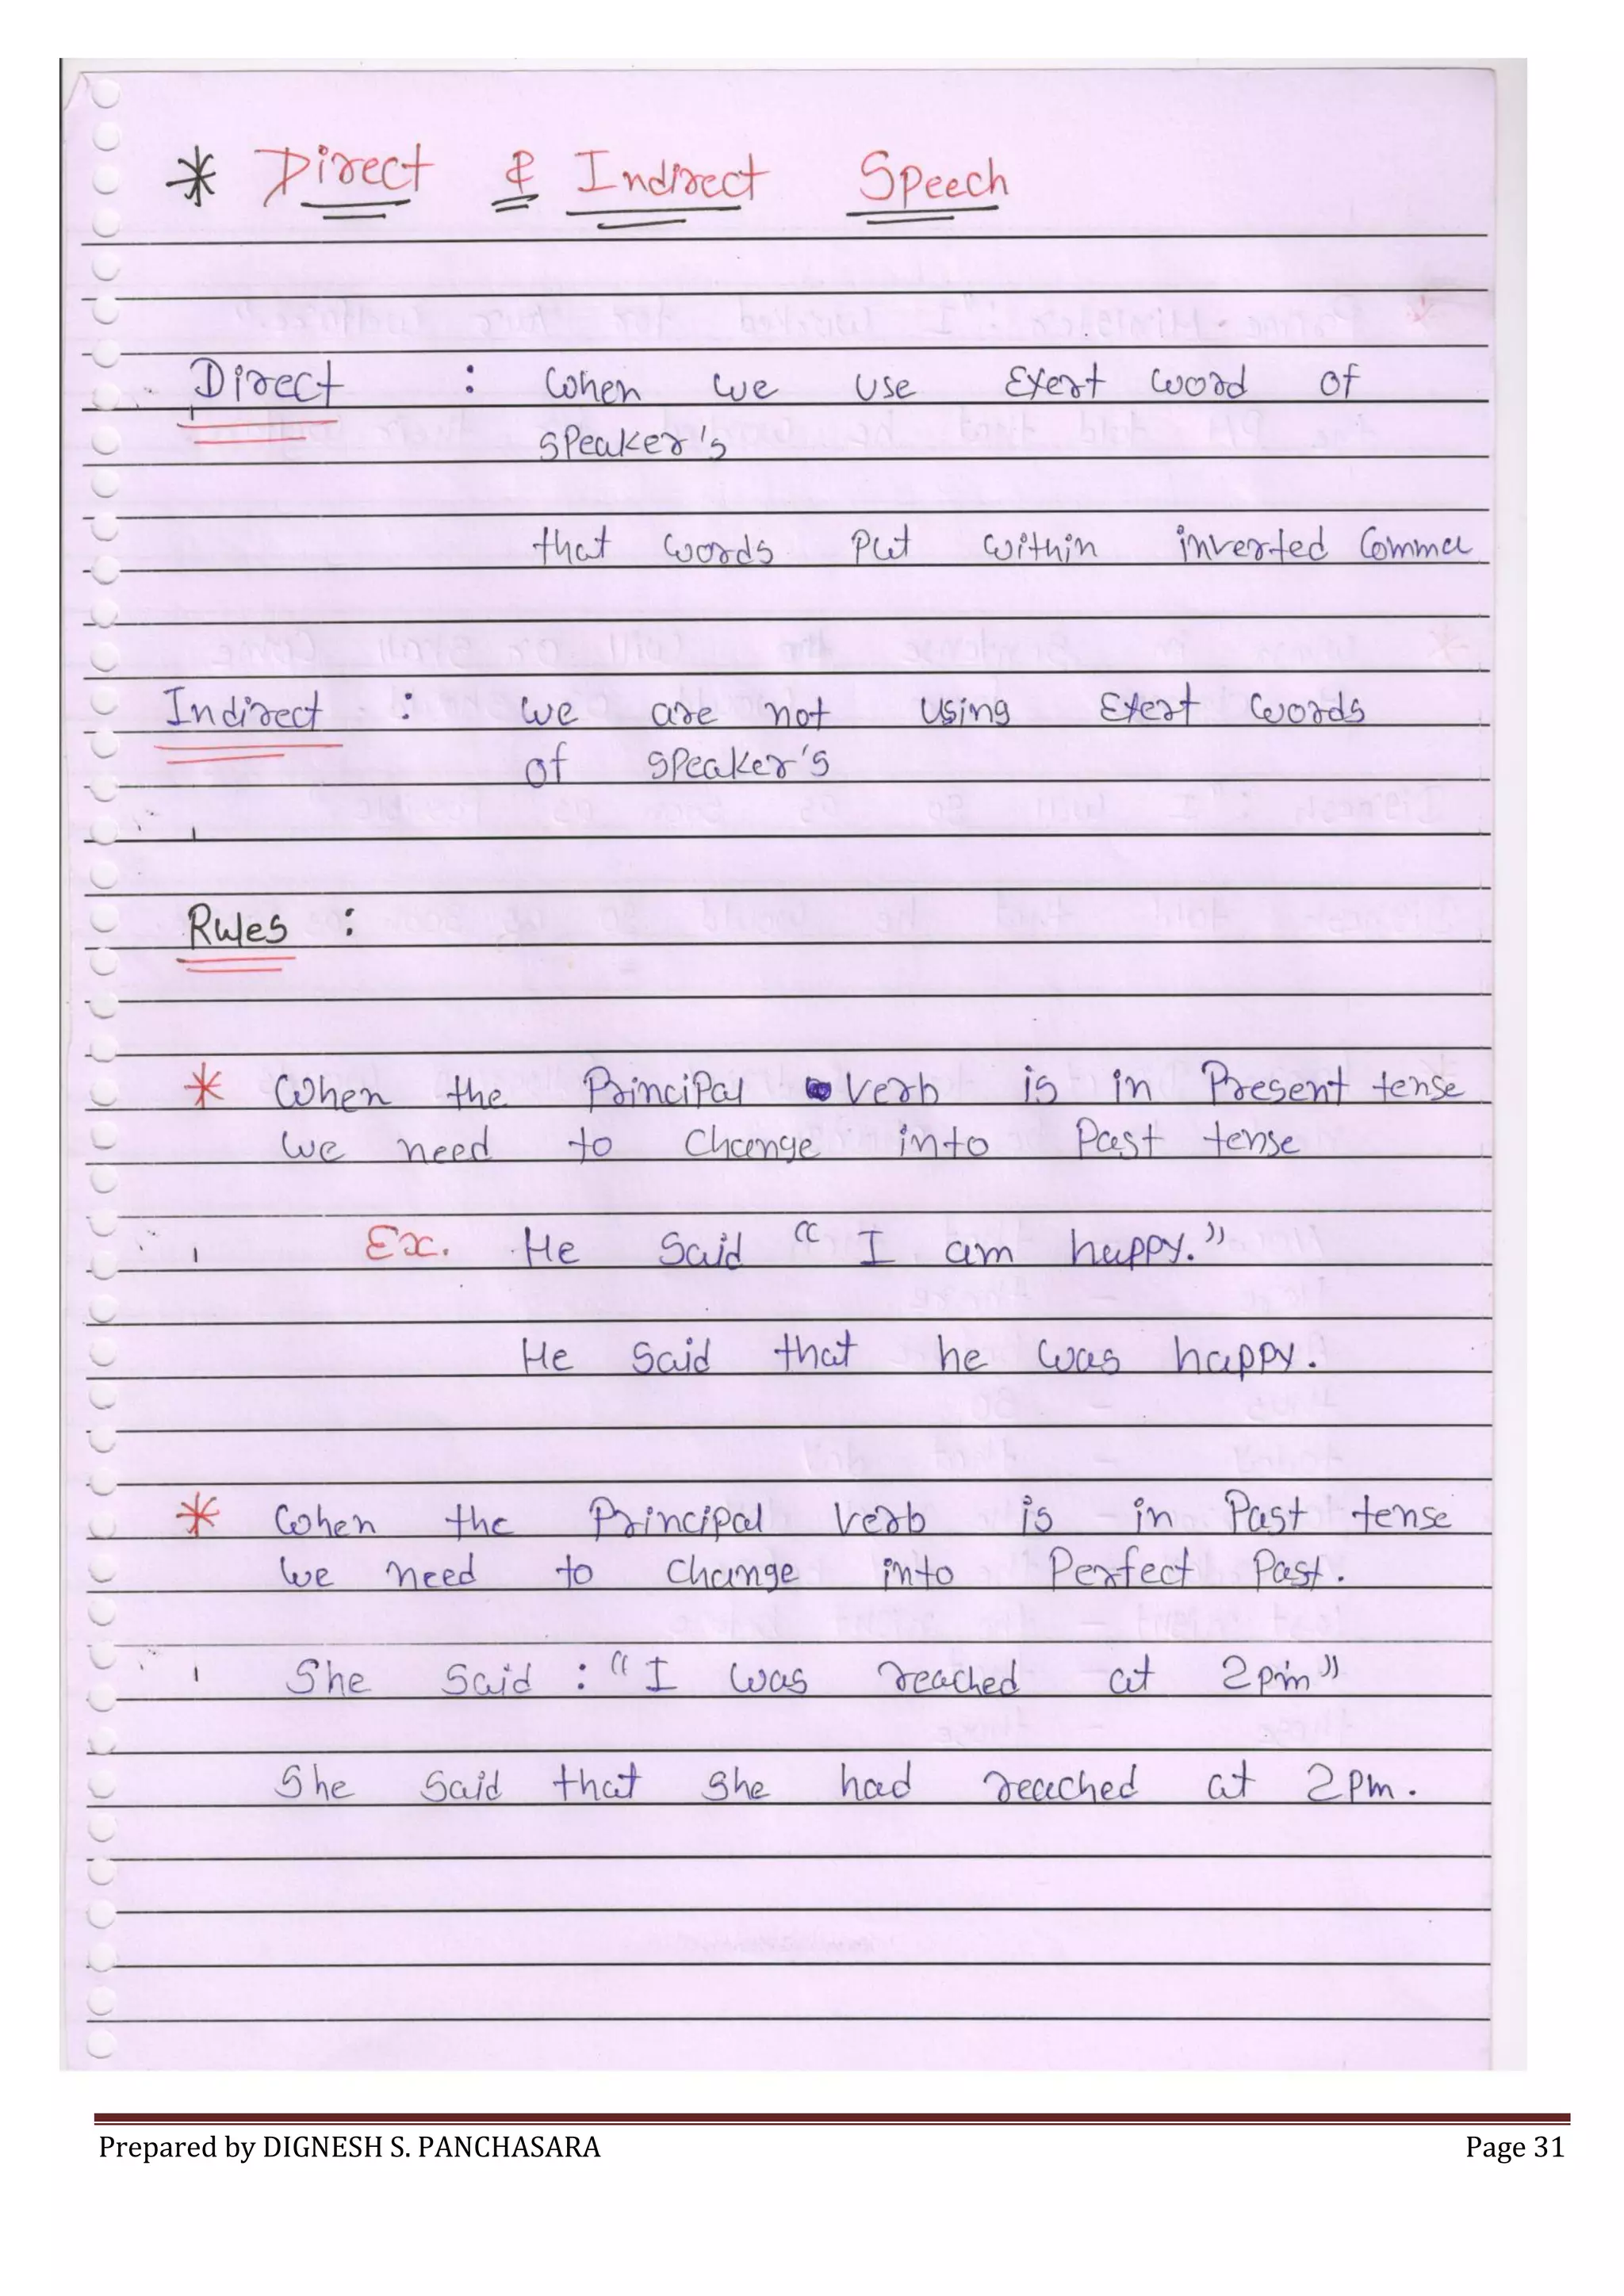 * Direct & Indirect Speech
Direct : When we use Exert word of
speaker's
that words put within inverted Comma
Indirect : we are not using Exert words
of speaker's
Rules :
* When the Principal verb is in Present tense
we need to change into Past tense
Ex. He said “ I am happy.”
He said that he was happy.
* When the Principal verb is in Past tense
we need to change into Perfect Past.
She said : “ I was reached at 2pm ”
She said that she had reached at 2pm.
Prepared by DIGNESH S. PANCHASARA Page 31